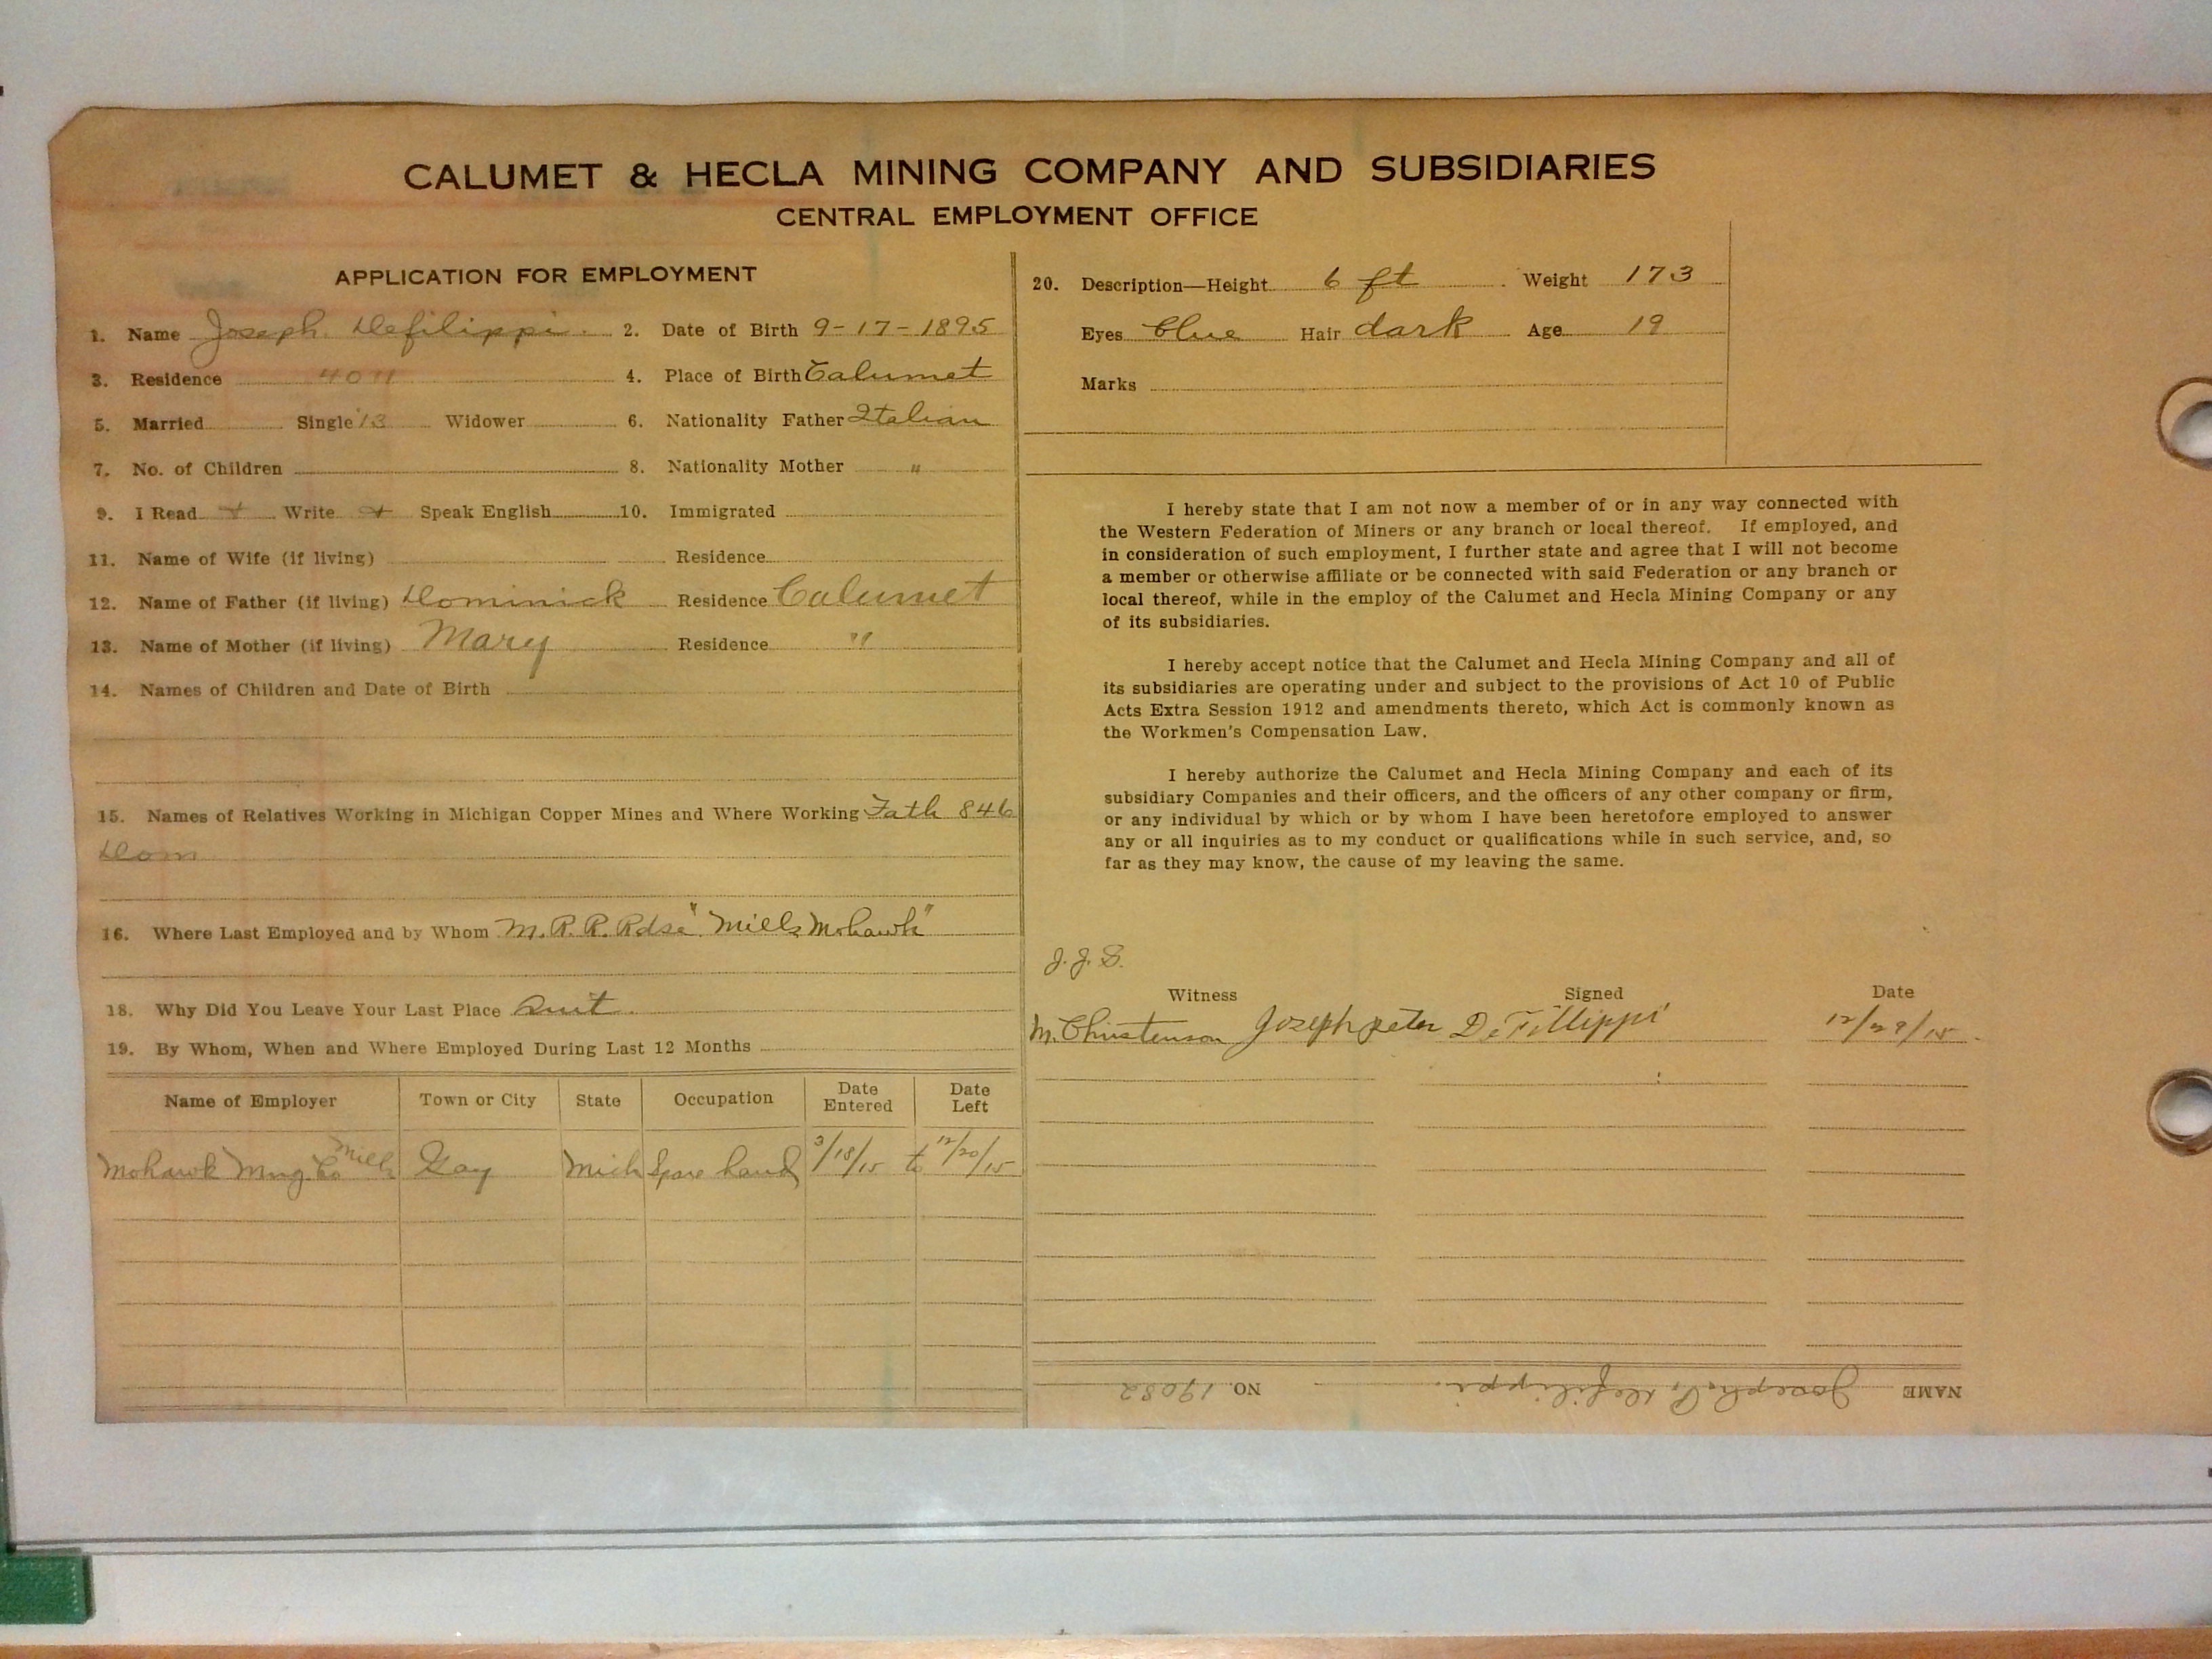 CALUMET & HECLA MINING COMPANY AND SUBSIDIARIES
CENTRAL EMPLOYMENT OFFICE
APPLICATION FOR EMPLOYMENT
1. Name Joseph Defilippi. 2. Date of Birth 9-17-1895
3. Residence 4011 4. Place of Birth Calumet
5. Married Single '13 Widower 6. Nationality Father Italian
7. No. of Children 8. Nationality Mother "
9. I Read + Write + Speak English 10. Immigrated
11. Name of Wife (if living) Residence
12. Name of Father (if living) Dominick Residence Calumet
13. Name of Mother (if living) Mary Residence "
14. Names of Children and Date of Birth
15. Names of Relatives Working in Michigan Copper Mines and Where Working Fath 846
Dom
16. Where Last Employed and by Whom M. R. R. "Mills Mohawk"
18. Why Did You Leave Your Last Place Quit.
19. By Whom, When and Where Employed During Last 12 Months
Name of Employer Town or City State Occupation Date Entered Date Left
Mohawk Mng. Co Mills Gay Mich Spare hand 3/18/15 to 12/20/15
20. Description—Height 6 ft Weight 173
Eyes blue Hair dark Age 19
Marks
I hereby state that I am not now a member of or in any way connected with
the Western Federation of Miners or any branch or local thereof. If employed, and
in consideration of such employment, I further state and agree that I will not become
a member or otherwise affiliate or be connected with said Federation or any branch or
local thereof, while in the employ of the Calumet and Hecla Mining Company or any
of its subsidiaries.
I hereby accept notice that the Calumet and Hecla Mining Company and all of
its subsidiaries are operating under and subject to the provisions of Act 10 of Public
Acts Extra Session 1912 and amendments thereto, which Act is commonly known as
the Workmen's Compensation Law.
I hereby authorize the Calumet and Hecla Mining Company and each of its
subsidiary Companies and their officers, and the officers of any other company or firm,
or any individual by which or by whom I have been heretofore employed to answer
any or all inquiries as to my conduct or qualifications while in such service, and, so
far as they may know, the cause of my leaving the same.
J. J. S.
Witness Signed Date
M. Christenson Joseph peter DeFillippi 12/29/15.
NAME Joseph P. Defilippi. NO. 19082